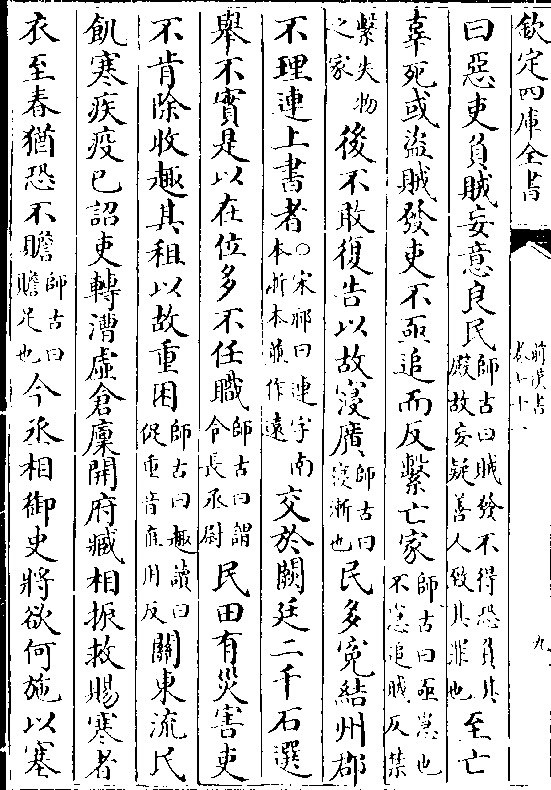 欽定四庫全書
前漢書
卷七十一
九
曰惡吏負賊妄意良民師古曰賊發不得恐負其
殿故妄疑善人致其罪也至亡
辜死或盜賊發吏不亟追而反繫亡家師古曰亟急也
不急追賊反禁
繫失物
之家後不敢復告以故寖廣師古曰
寖漸也民多寃結州郡
不理連上書者○宋祁曰連字南
本浙本並作遠交於闕廷二千石選
舉不實是以在位多不任職師古曰謂
令長丞尉民田有災害吏
不肯除收趣其租以故重困師古曰趣讀曰
促重音直用反關東流民
飢寒疾疫已詔吏轉漕虛倉廩開府臧相振救賜寒者
衣至春猶恐不贍師古曰
贍足也今丞相御史將欲何施以塞